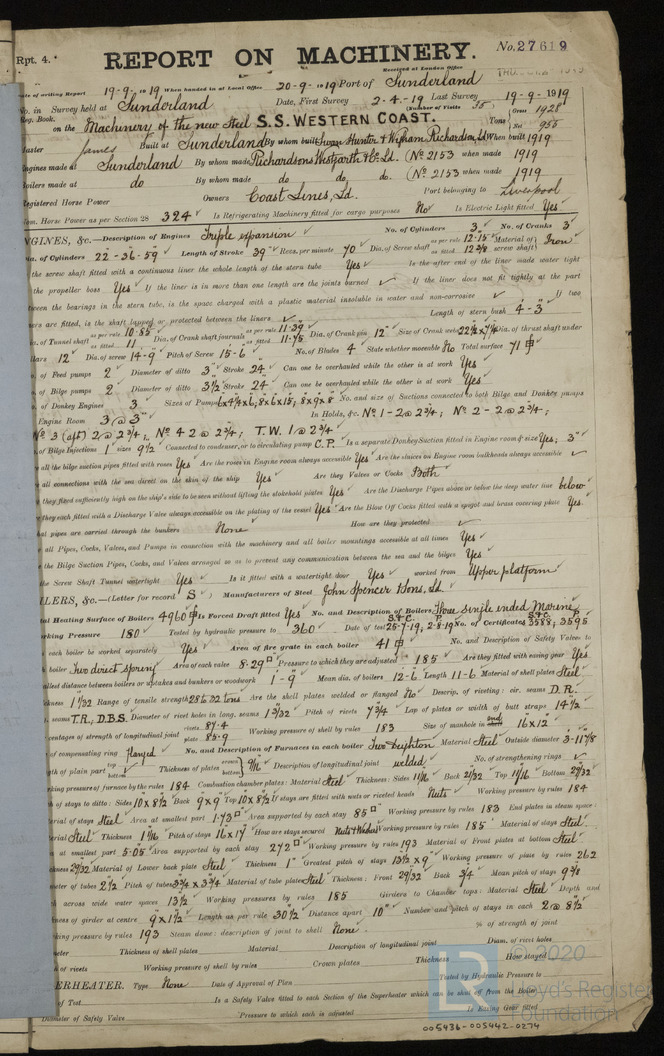 Rpt. 4.
REPORT ON MACHINERY.
No. 27619
Received at London Office
of writing Report 19-9-1919 When handed in at Local Office 20-9-1919 Port of Sunderland
No. in Survey held at Sunderland Date, First Survey 2-4-19 Last Survey 19-9-1919
Reg. Book. (Number of Visits 38)
on the Machinery of the new Steel S.S. WESTERN COAST. Tons Gross 1928 Net 955
Master James Built at Sunderland By whom built Swan Hunter & Wigham Richardson, Ld When built 1919
Engines made at Sunderland By whom made Richardsons Westgarth & Co. Ld. (No 2153 when made 1919
Boilers made at do By whom made do do. do. (No 2153 when made 1919
Registered Horse Power Owners Coast Lines, Ld. Port belonging to Liverpool
Nom. Horse Power as per Section 28 324 Is Refrigerating Machinery fitted for cargo purposes No Is Electric Light fitted Yes
ENGINES, &c.—Description of Engines Triple expansion No. of Cylinders 3 No. of Cranks 3
Dia. of Cylinders 22-36-59 Length of Stroke 39 Revs. per minute 70 Dia. of Screw shaft as per rule 12.15 as fitted 12 3/8 Material of screw shaft Iron
the screw shaft fitted with a continuous liner the whole length of the stern tube Yes Is the after end of the liner made water tight
the propeller boss Yes If the liner is in more than one length are the joints burned If the liner does not fit tightly at the part
between the bearings in the stern tube, is the space charged with a plastic material insoluble in water and non-corrosive If two
liners are fitted, is the shaft lapped or protected between the liners Length of stern bush 4-3
of Tunnel shaft as per rule 10.85 as fitted 11 Dia. of Crank shaft journals as per rule 11.39 as fitted 11.75 Dia. of Crank pin 12" Size of Crank webs 22½ x 7¼ Dia. of thrust shaft under
collars 12 Dia. of screw 14-9 Pitch of Screw 15-6 No. of Blades 4 State whether moveable No Total surface 71
of Feed pumps 2 Diameter of ditto 3" Stroke 24 Can one be overhauled while the other is at work Yes
of Bilge pumps 2 Diameter of ditto 3½ Stroke 24 Can one be overhauled while the other is at work Yes
of Donkey Engines 3 Sizes of Pumps 6x4¼x6, 8x6x15; 8x9x8 No. and size of Suctions connected to both Bilge and Donkey pumps
Engine Room 3 @ 3" In Holds, &c. No 1-2 @ 2¾; No 2-2 @ 2¾;
No 3 (aft) 2 @ 2¾, No 4 2 @ 2¾; T.W. 1 @ 2¾
of Bilge Injections 1 sizes 9½ Connected to condenser, or to circulating pump C.P. Is a separate Donkey Suction fitted in Engine room & size Yes; 3"
all the bilge suction pipes fitted with roses Yes Are the roses in Engine room always accessible Yes Are the sluices on Engine room bulkheads always accessible
all connections with the sea direct on the skin of the ship Yes Are they Valves or Cocks Both
they fixed sufficiently high on the ship's side to be seen without lifting the stokehold plates Yes Are the Discharge Pipes above or below the deep water line below
they each fitted with a Discharge Valve always accessible on the plating of the vessel Yes Are the Blow Off Cocks fitted with a spigot and brass covering plate Yes.
What pipes are carried through the bunkers None How are they protected
all Pipes, Cocks, Valves, and Pumps in connection with the machinery and all boiler mountings accessible at all times Yes
the Bilge Suction Pipes, Cocks, and Valves arranged so as to prevent any communication between the sea and the bilges Yes
the Screw Shaft Tunnel watertight Yes Is it fitted with a watertight door Yes worked from Upper platform
BOILERS, &c.—(Letter for record S) Manufacturers of Steel John Spencer & Sons, Ld.
Total Heating Surface of Boilers 4960 Is Forced Draft fitted Yes No. and Description of Boilers Three single ended Marine
Working Pressure 180 Tested by hydraulic pressure to 360 Date of test S.&C. 25-7-19; P. 2-8-19 No. of Certificates S.&C. 3588; P. 3595
each boiler be worked separately Yes Area of fire grate in each boiler 41 No. and Description of Safety Valves to
boiler Two direct Spring Area of each valve 8.29 Pressure to which they are adjusted 185 Are they fitted with easing gear Yes
smallest distance between boilers or uptakes and bunkers or woodwork 1-9 Mean dia. of boilers 12-6 Length 11-6 Material of shell plates Steel
thickness 1 1/32 Range of tensile strength 28 to 32 tons Are the shell plates welded or flanged No Descrip. of riveting: cir. seams D.R.
seams T.R.; D.B.S. Diameter of rivet holes in long. seams 1 3/32 Pitch of rivets 7¾ Lap of plates or width of butt straps 14½
percentages of strength of longitudinal joint rivets 87.4 plate 85.9 Working pressure of shell by rules 183 Size of manhole in end 16 x 12
of compensating ring flanged No. and Description of Furnaces in each boiler Two Deighton Material Steel Outside diameter 3-11⅞
of plain part top bottom Thickness of plates crown bottom 9/16 Description of longitudinal joint welded No. of strengthening rings
Working pressure of furnace by the rules 184 Combustion chamber plates: Material Steel Thickness: Sides 11/16 Back 21/32 Top 11/16 Bottom 29/32
of stays to ditto: Sides 10 x 8½ Back 9 x 9 Top 10 x 8½ If stays are fitted with nuts or riveted heads Nuts Working pressure by rules 184
Material of stays Steel Area at smallest part 1.73 Area supported by each stay 85 Working pressure by rules 183 End plates in steam space:
Material Steel Thickness 1 1/16 Pitch of stays 16 x 17 How are stays secured Nuts & Washers Working pressure by rules 185 Material of stays Steel
at smallest part 5.05 Area supported by each stay 272 Working pressure by rules 193 Material of Front plates at bottom Steel
Thickness 29/32 Material of Lower back plate Steel Thickness 1" Greatest pitch of stays 13½ x 9 Working pressure of plate by rules 262
Diameter of tubes 2½ Pitch of tubes 3¾ x 3¾ Material of tube plates Steel Thickness: Front 29/32 Back 3/4 Mean pitch of stays 9⅜
across wide water spaces 13½ Working pressures by rules 185 Girders to Chamber tops: Material Steel Depth and
thickness of girder at centre 9 x 1½ Length as per rule 30½ Distance apart 10" Number and pitch of stays in each 2 @ 8½
Working pressure by rules 193 Steam dome: description of joint to shell None. % of strength of joint
Diameter Thickness of shell plates Material Description of longitudinal joint Diam. of rivet holes
Pitch of rivets Working pressure of shell by rules Crown plates Thickness How stayed
SUPERHEATER. Type None Date of Approval of Plan Tested by Hydraulic Pressure to
of Test Is a Safety Valve fitted to each Section of the Superheater which can be shut off from the Boiler
Diameter of Safety Valve Pressure to which each is adjusted Is Easing Gear fitted
© 2020
Lloyd's Register
Foundation
005436-005442-0274